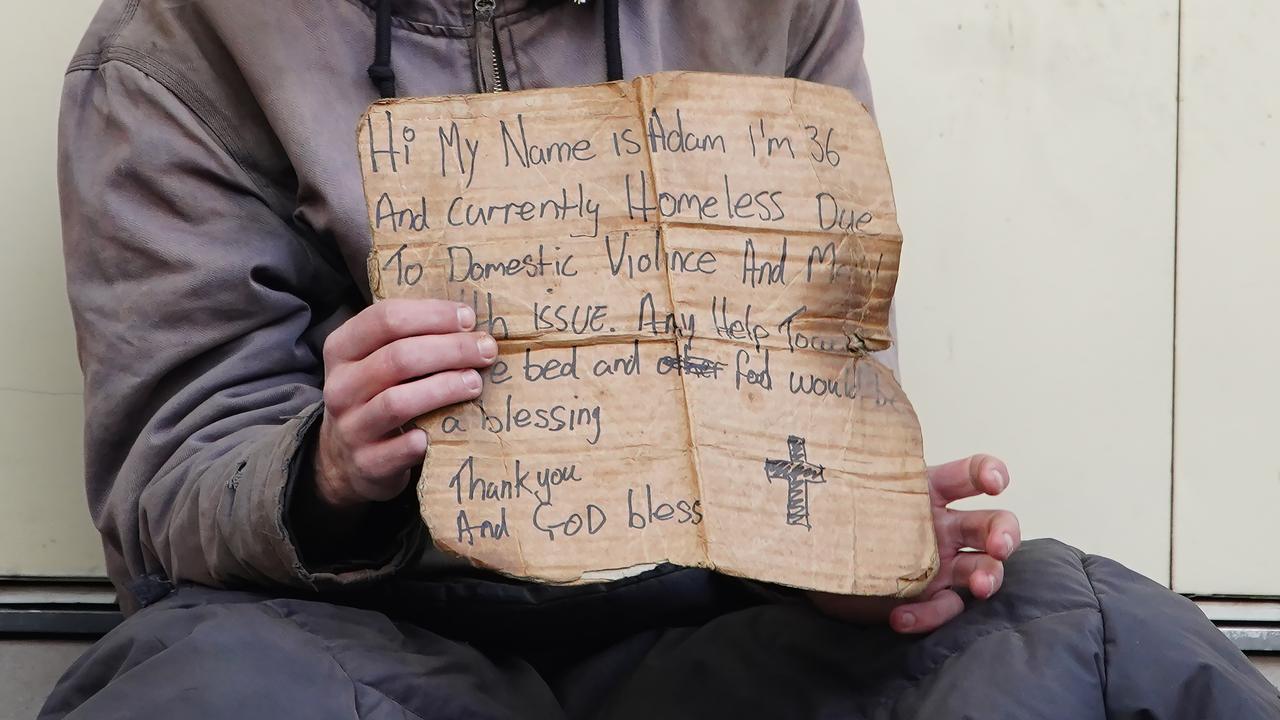 Hi My Name is Adam I'm 36
And Currently Homeless Due
To Domestic Violnce And
ISSUE. Any Help
bed and food would be
a blessing
Thank you
And GOD bless